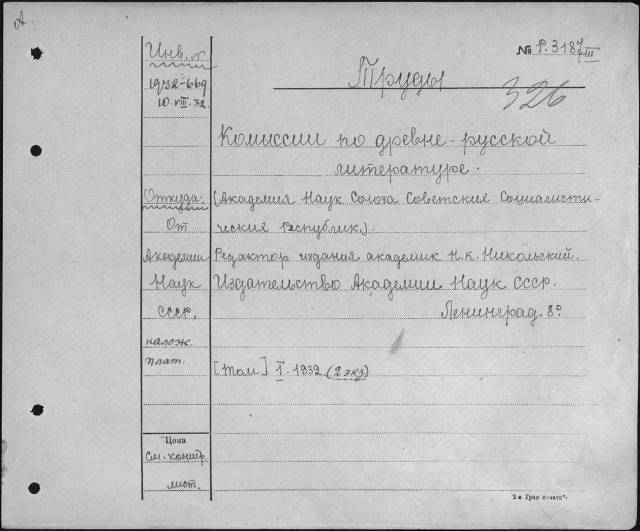 Инв. №
№ Р. 3187/III
1932-669
10.VIII.32.
Труды
326
Комиссии по древне-русской
литературе.
Откуда:
(Академия Наук Союза Советских Социалисти-
От
ческих Республик.)
Академии
Редактор издания академик Н.К. Никольский.
Наук
Издательство Академии Наук СССР.
СССР,
Ленинград. 8º
налож.
плат.
[том] I. 1932 (2 экз)
Цена
См. контр.
лист.